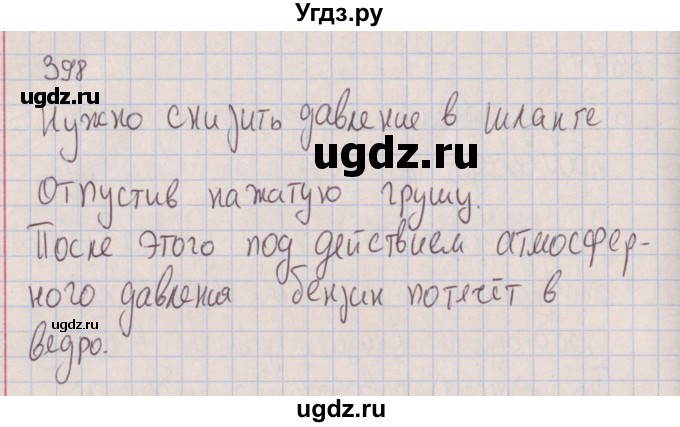 Угдз.ру
398
ugdz.ru
Нужно снизить давление в шланге
ugdz.ru
Отпустив нажатую грушу.
После этого под действием атмосфер-
ного давления бензин потечёт в
ugdz.ru
ведро.
ugdz.ru